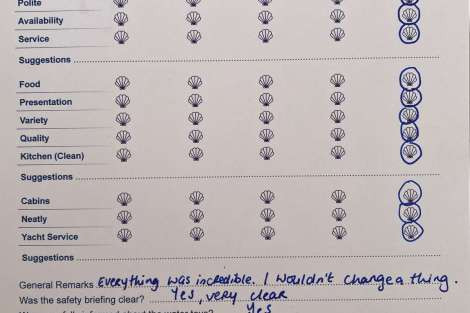 Polite
Availability
Service
Suggestions
Food
Presentation
Variety
Quality
Kitchen (Clean)
Suggestions
Cabins
Neatly
Yacht Service
Suggestions
General Remarks Everything was incredible. I wouldn't change a thing.
Was the safety briefing clear? Yes, very clear
Yes